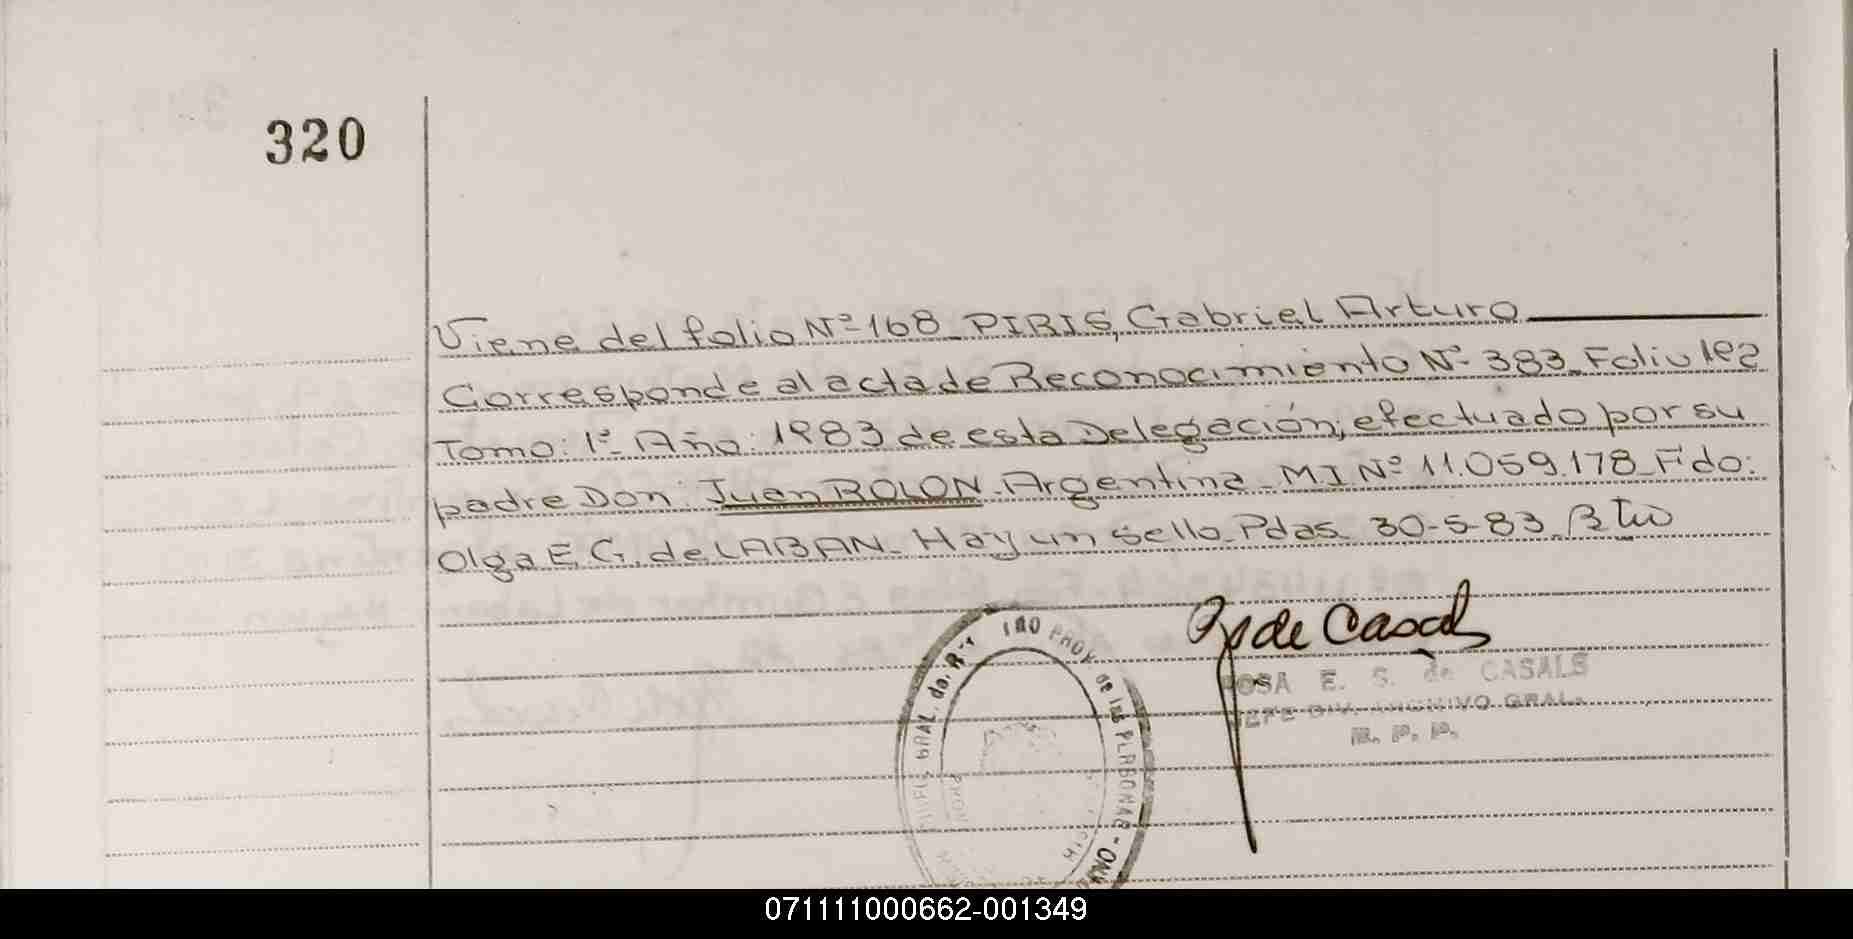 320
Viene del folio Nº 168_ PIRIS, Gabriel Arturo
Corresponde al acta de Reconocimiento Nº 383_ Folio 192
Tomo: 1º_ Año: 1983 de esta Delegación, efectuado por su
padre Don: Juan ROLON_ Argentina_ MI Nº 11.059.178_ Fdo:
Olga E. G. de LABAN_ Hay un sello_ Pdas_ 30-5-83_
de Casals
ROSA E. S. de CASALS
JEFE DIV. ARCHIVO GRAL.
R. P. P.
GRAL. de PROV. de las PERSONAS
071111000662-001349